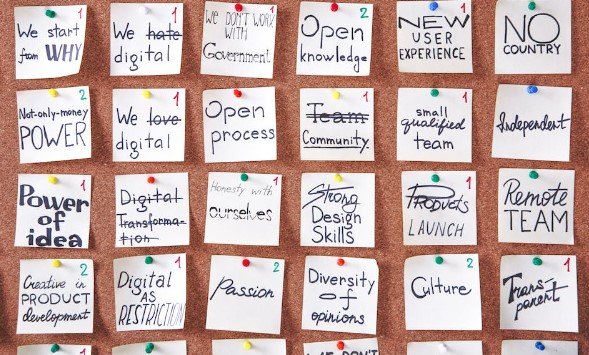 We start
from WHY
1
We hate
digital
1
We DON'T WORK
WITH
Government
1
Open
knowledge
2
NEW
USER
EXPERIENCE
1
NO
COUNTRY
Not-only-money
POWER
2
We love
digital
1
Open
process
1
Team
Community
1
small
qualified
team
1
Independent
Power
of
idea
1
Digital
Transforma-
tion
1
Honesty with
ourselves
1
Strong
Design
Skills
Products
LAUNCH
1
Remote
TEAM
Creative in
PRODUCT
development
2
Digital
AS
RESTRICTION
1
Passion
2
Diversity
of
opinions
Culture
2
Trans
parent
1
We DON'T